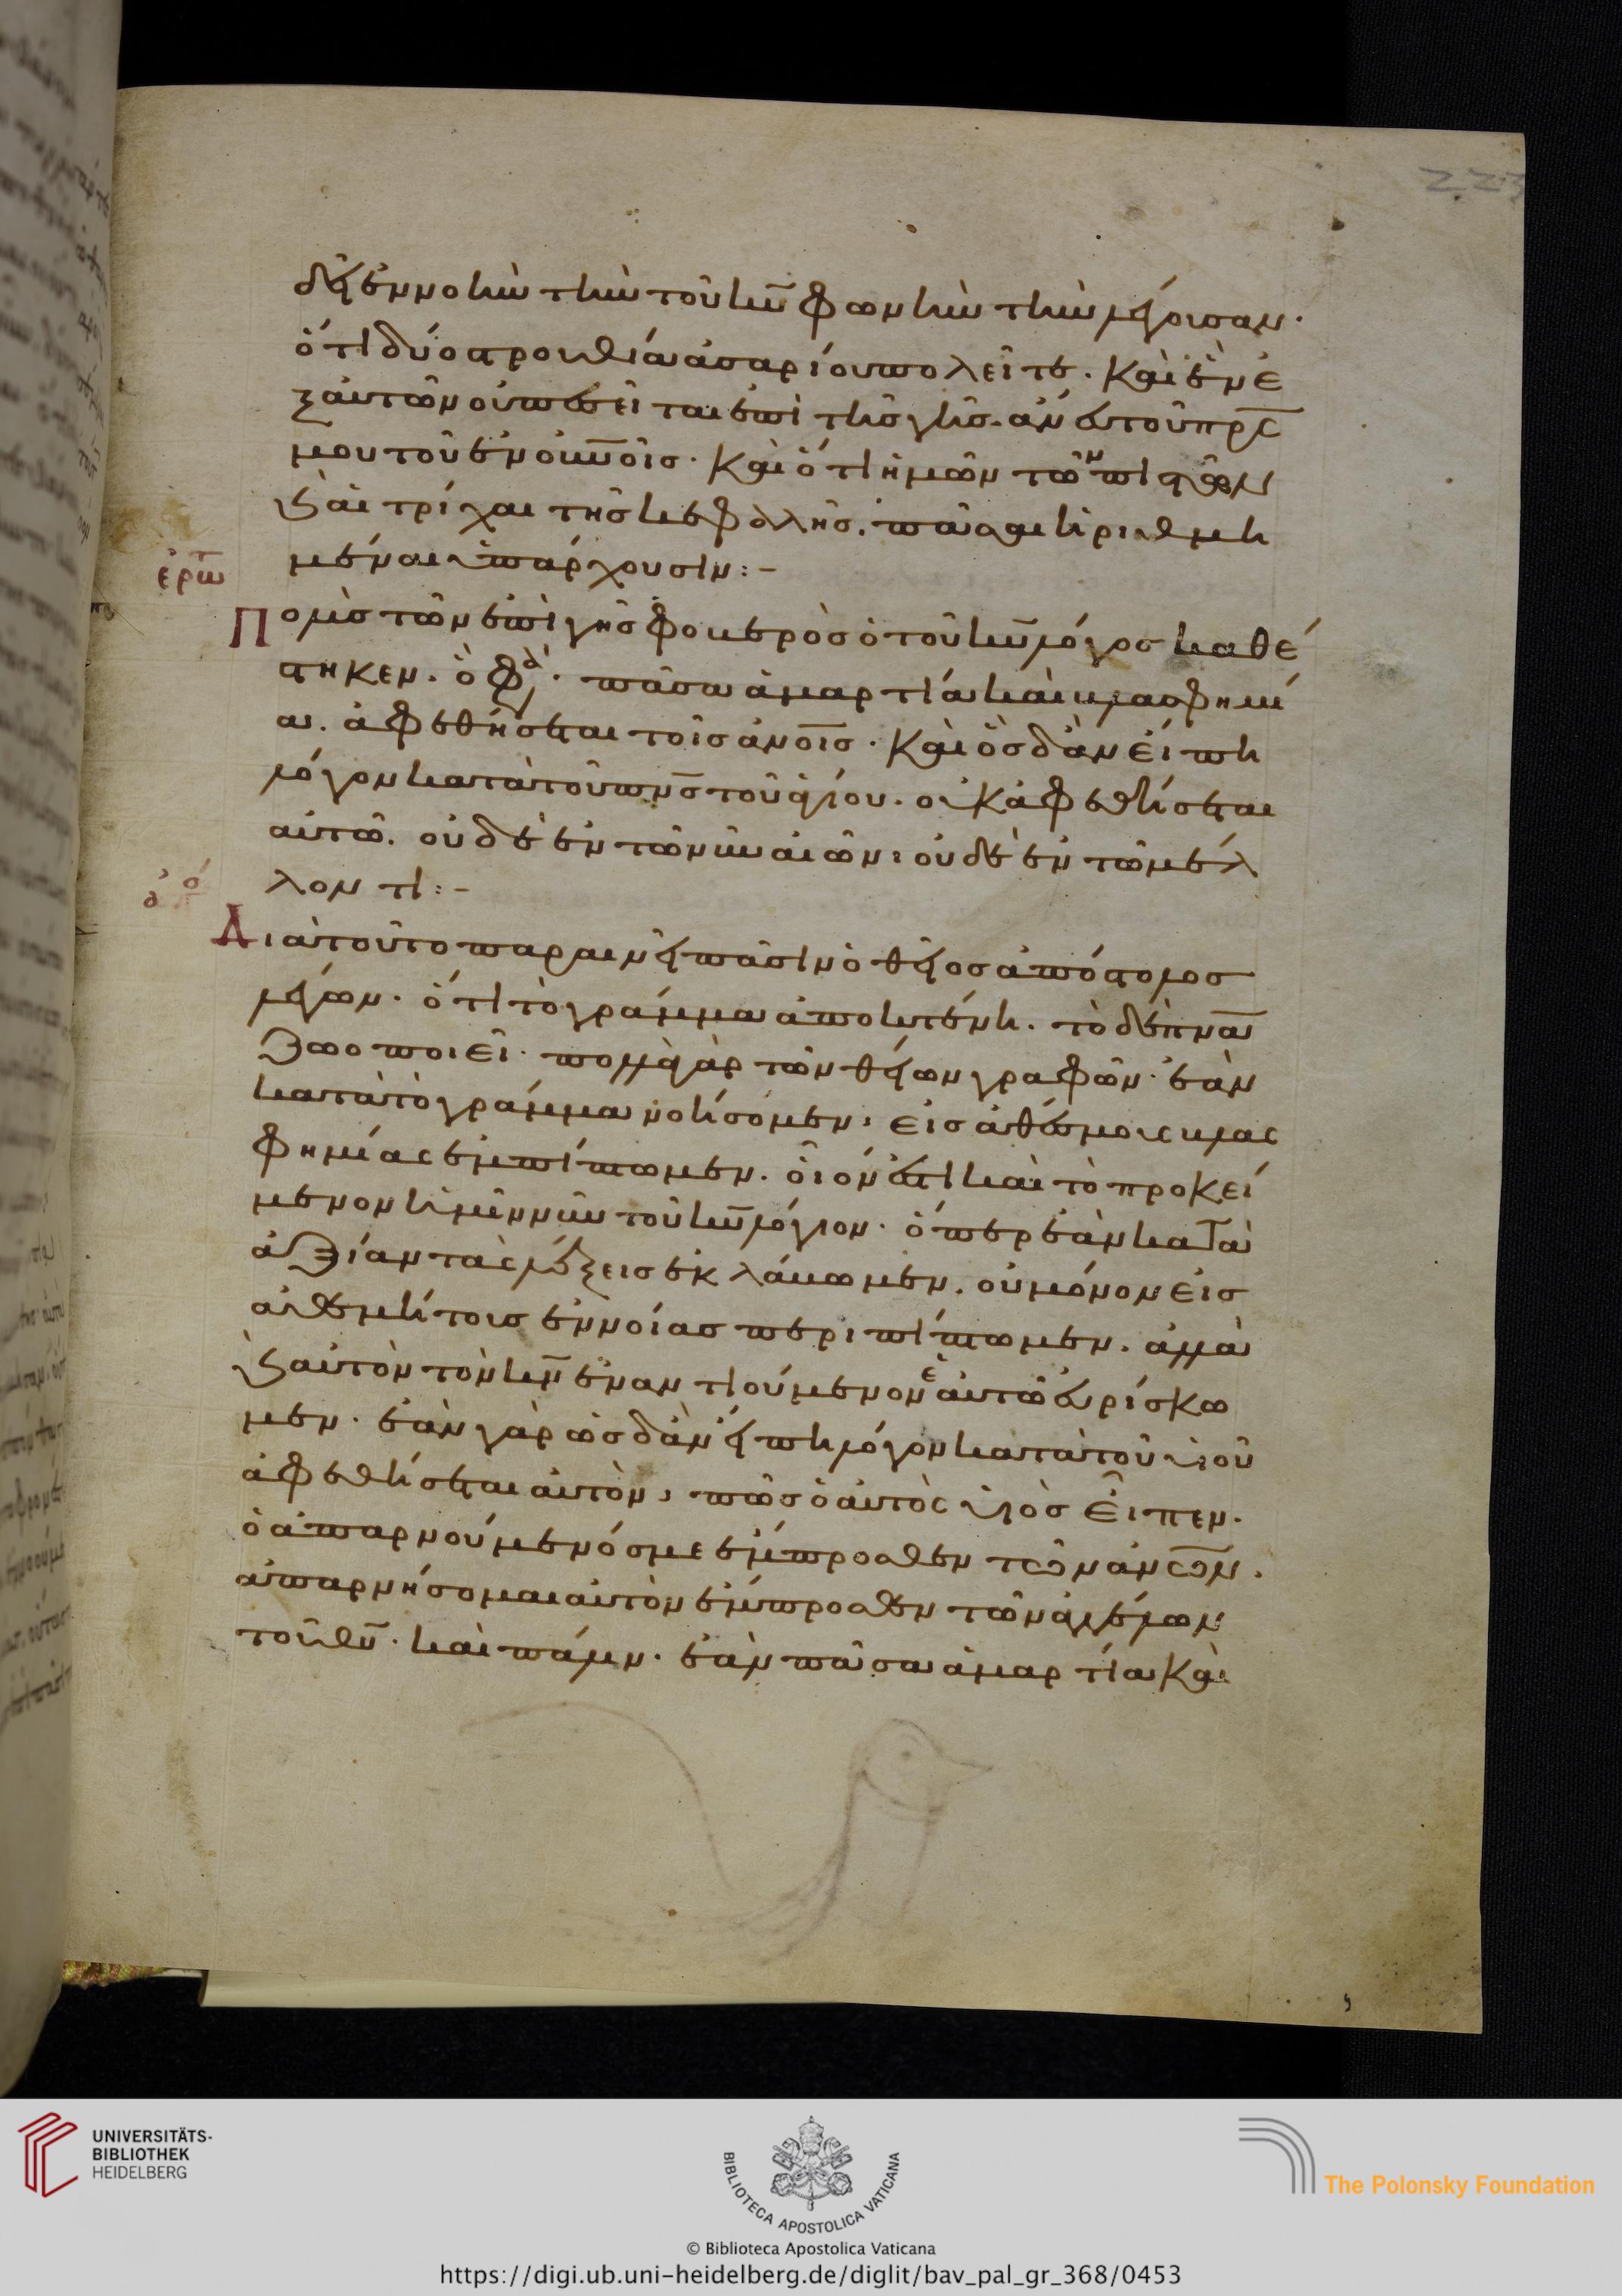 223
δεῖ ἐννοεῖν τὴν τοῦ κυ φωνὴν τὴν λέγουσαν·
ὅτι δύο στρουθία ἀσαρίου πολεῖτε. καὶ ἓν ἐ
ξ αὐτῶν οὐ πεσεῖται ἐπὶ τῆς γῆς. ἄνευ τοῦ πρς
μου τοῦ ἐν οὐνοῖς. καὶ ὅτι ἡμῶν τῶν πιστῶν
καὶ αἱ τρίχαι τῆς κεφαλῆς. πᾶσαι ἠριθμη
μέναι ὑπάρχουσιν:-
ἐρωτ
Πολλοῖς τῶν ἐπὶ γῆς φοβερὸς ὁ τοῦ κυ λόγος καθέ
στηκεν. ὁ φ πᾶσα ἁμαρτία καὶ βλασφημί
α. ἀφεθήσεται τοῖς ἀνοις. καὶ ὃς δἂν εἴπη
λόγον κατὰ τοῦ πνς τοῦ ἁγίου. οὐκ ἀφεθήσεται
αὐτῶ. οὐδὲ ἐν τῶ νῦν αἰῶνι οὐδὲ ἐν τῶ μέλ
λοντι:-
ἀπο
Διὰ τοῦτο παραινεῖ πᾶσιν ὁ θεῖος ἀπόστολος
λέγων. ὅτι τὸ γράμμα ἀποκτένει. τὸ δὲ πνα
ζωοποιεῖ. πολλὰ γὰρ τῶν θείων γραφῶν. ἐὰν
κατὰ τὸ γράμμα νοήσομεν, εἰς ἀθέσμους βλας
φημίας ἐμπίπτωμεν. οἷόν ἐστι καὶ τὸ προκεί
μενον ἡμῖν νῦν τοῦ κυ λόγιον. ὅπερ ἐὰν κατὰ
ἀξίαν τὰς λέξεις ἐκλάβωμεν. οὐ μόνον εἰς
ἀθεμίτοις ἐννοίας περιπίπτωμεν. ἀλλὰ
καὶ αὐτὸν τὸν κν ἐναντιούμενον ἑαυτῶ εὑρίσκω
μεν. ἐὰν γὰρ ὡς δἂν εἴπη λόγον κατὰ τοῦ υἱοῦ
ἀφεθήσεται αὐτὸν, πῶς ὁ αὐτὸς υἱὸς εἶπεν.
ὁ ἀπαρνούμενός με ἔμπροσθεν τῶν ἀνων.
ἀπαρνήσομαι αὐτὸν ἔμπροσθεν τῶν ἀγγέλων
τοῦ θυ. καὶ πάλιν. ἐὰν πᾶσα ἁμαρτία καὶ
UNIVERSITÄTS-
BIBLIOTHEK
HEIDELBERG
BIBLIOTECA APOSTOLICA VATICANA
The Polonsky Foundation
© Biblioteca Apostolica Vaticana
https://digi.ub.uni-heidelberg.de/diglit/bav_pal_gr_368/0453